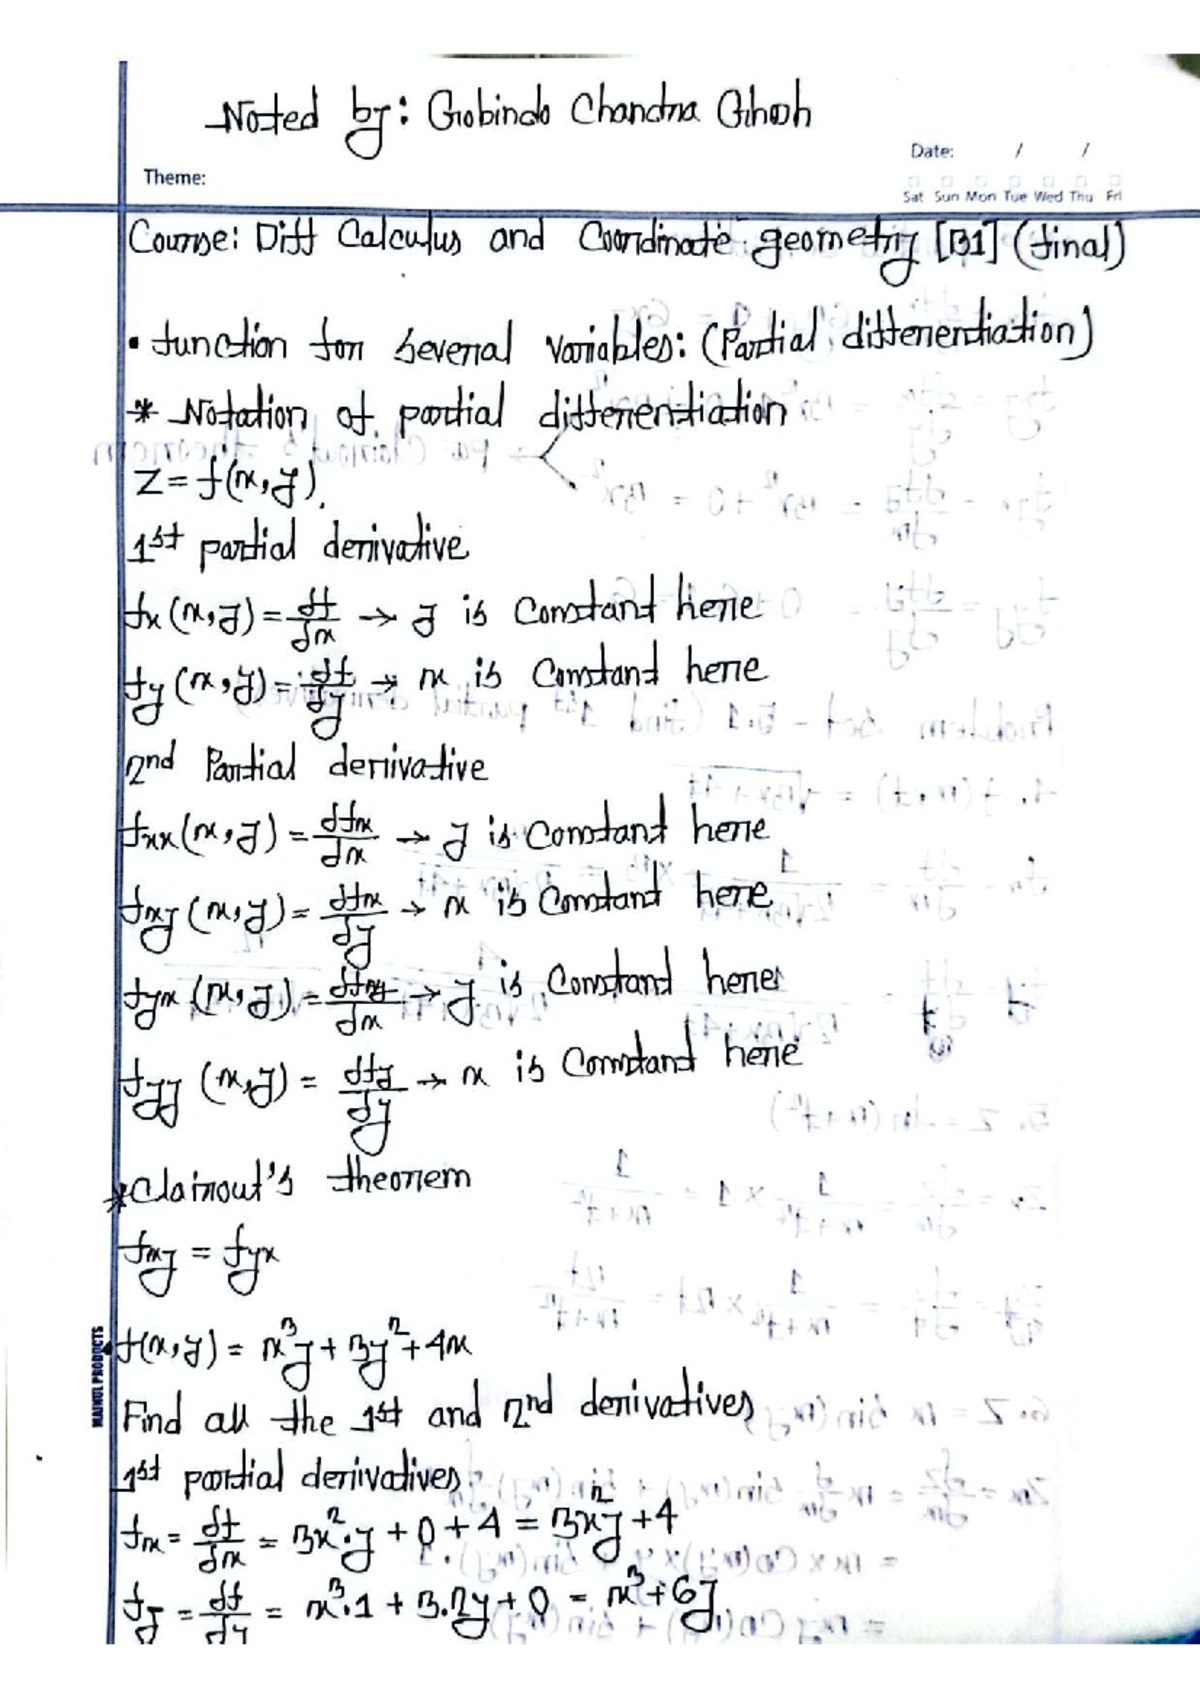 Noted by: Gobindo Chandra Ghosh
Date: / /
Theme:
Sat Sun Mon Tue Wed Thu Fri
Course: Diff Calculus and Coordinate geometry [B1] (final)
• function for several variables: (Partial differentiation)
* Notation of partial differentiation
z = f(x,y)
1st partial derivative
fx (x,y) = df/dx → y is constant here
fy (x,y) = df/dy → x is constant here
2nd Partial derivative
fxx (x,y) = dfx/dx → y is constant here
fxy (x,y) = dfx/dy → x is constant here
fyx (x,y) = dfy/dx → y is constant here
fyy (x,y) = dfy/dy → x is constant here
* Clairout's theorem
fxy = fyx
f(x,y) = x³y + 3y² + 4x
Find all the 1st and 2nd derivatives
1st partial derivatives
fx = df/dx = 3x².y + 0 + 4 = 3x²y + 4
fy = df/dy = x³.1 + 3.2y + 0 = x³ + 6y
MAINUL PRODUCTS